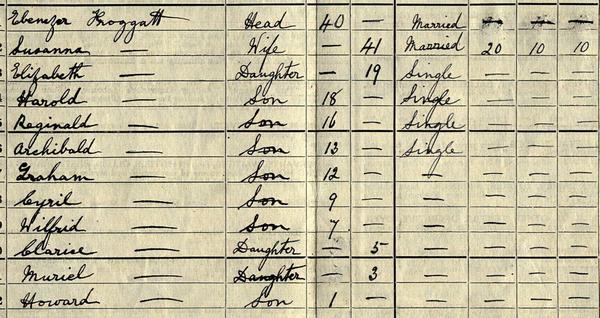 Ebenezer Froggatt Head 40 — Married — — —
2 Susanna — Wife — 41 Married 20 10 10
3 Elizabeth — Daughter — 19 Single — — —
4 Harold — Son 18 — Single — — —
5 Reginald — Son 16 — Single — — —
6 Archibald — Son 13 — Single — — —
7 Graham — Son 12 — — — — —
8 Cyril — Son 9 — — — — —
9 Wilfrid — Son 7 — — — — —
0 Clarise — Daughter — 5 — — — —
1 Muriel — Daughter — 3 — — — —
2 Howard — Son 1 — — — — —